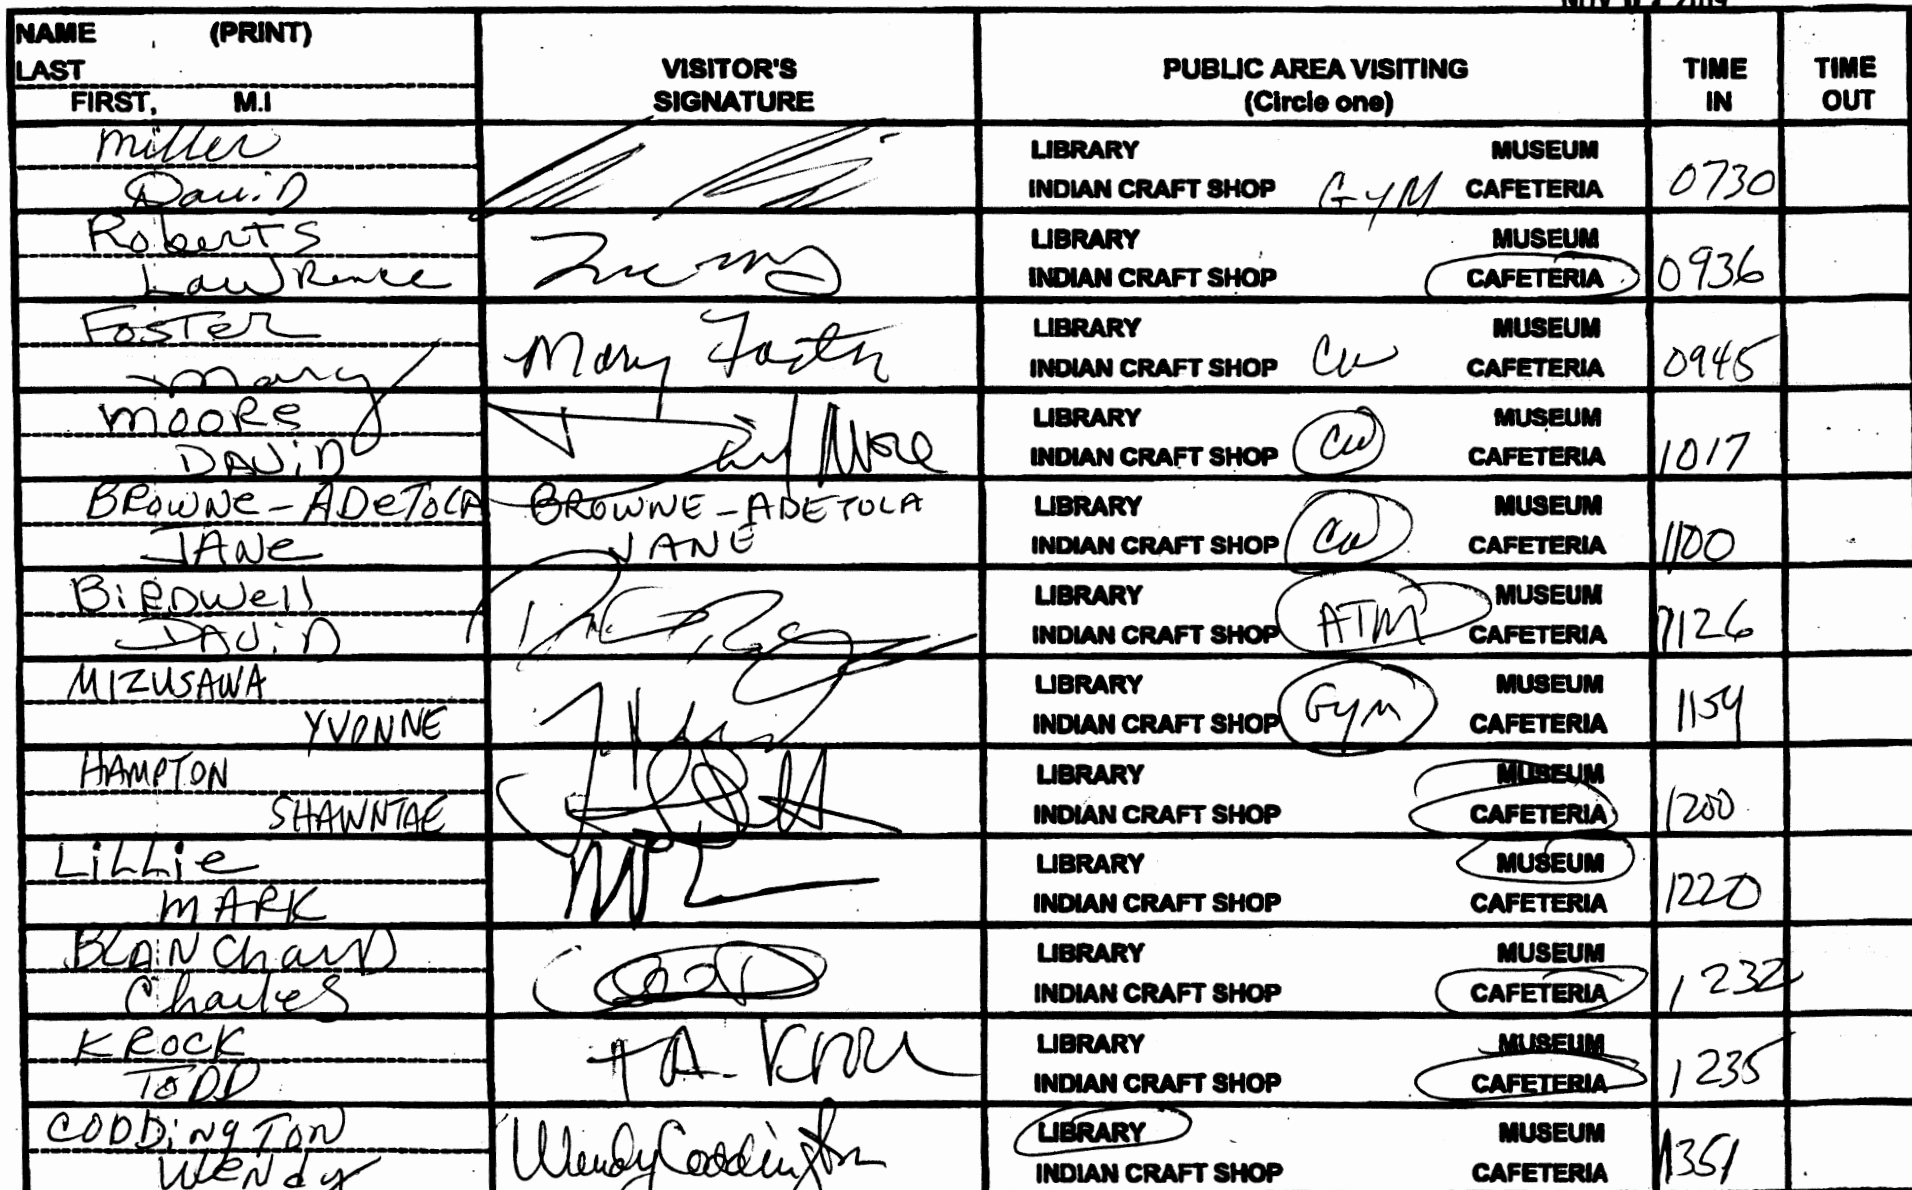 NAME (PRINT)
LAST
FIRST, M.I
VISITOR'S
SIGNATURE
PUBLIC AREA VISITING
(Circle one)
TIME
IN
TIME
OUT
Miller
David
LIBRARY MUSEUM
INDIAN CRAFT SHOP GYM CAFETERIA
0730
Roberts
Lawrence
LIBRARY MUSEUM
INDIAN CRAFT SHOP CAFETERIA
0936
Foster
Mary
Mary Foster
LIBRARY MUSEUM
INDIAN CRAFT SHOP CU CAFETERIA
0945
MOORE
DAVID
David Moore
LIBRARY MUSEUM
INDIAN CRAFT SHOP CU CAFETERIA
1017
BROWNE-ADETOLA
JANE
BROWNE-ADETOLA
JANE
LIBRARY MUSEUM
INDIAN CRAFT SHOP CU CAFETERIA
1100
BIRDWell
DAVID
LIBRARY MUSEUM
INDIAN CRAFT SHOP ATM CAFETERIA
1126
MIZUSAWA
YVONNE
LIBRARY MUSEUM
INDIAN CRAFT SHOP Gym CAFETERIA
1154
HAMPTON
SHAWNTAE
LIBRARY MUSEUM
INDIAN CRAFT SHOP CAFETERIA
1200
LiLLie
MARK
LIBRARY MUSEUM
INDIAN CRAFT SHOP CAFETERIA
1220
BLANCharD
Charles
LIBRARY MUSEUM
INDIAN CRAFT SHOP CAFETERIA
1232
KROCK
TODD
LIBRARY MUSEUM
INDIAN CRAFT SHOP CAFETERIA
1235
CODDingTon
Wendy
Wendy Coddington
LIBRARY MUSEUM
INDIAN CRAFT SHOP CAFETERIA
1351